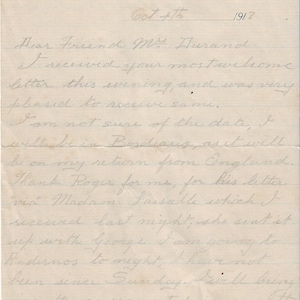 Oct 4th 1917
Dear Friend Mrs Durand
I received your most welcome
letter this evening and was very
pleased to receive same.
I am not sure of the date, I
will be in Bordeaux, as it will
be on my return from England
Thank Roger for me, for his letter
Madam Lassalle which I
received last night, she sent it
up with George. I am going to
to night, I have not
been since Sunday, I will bring